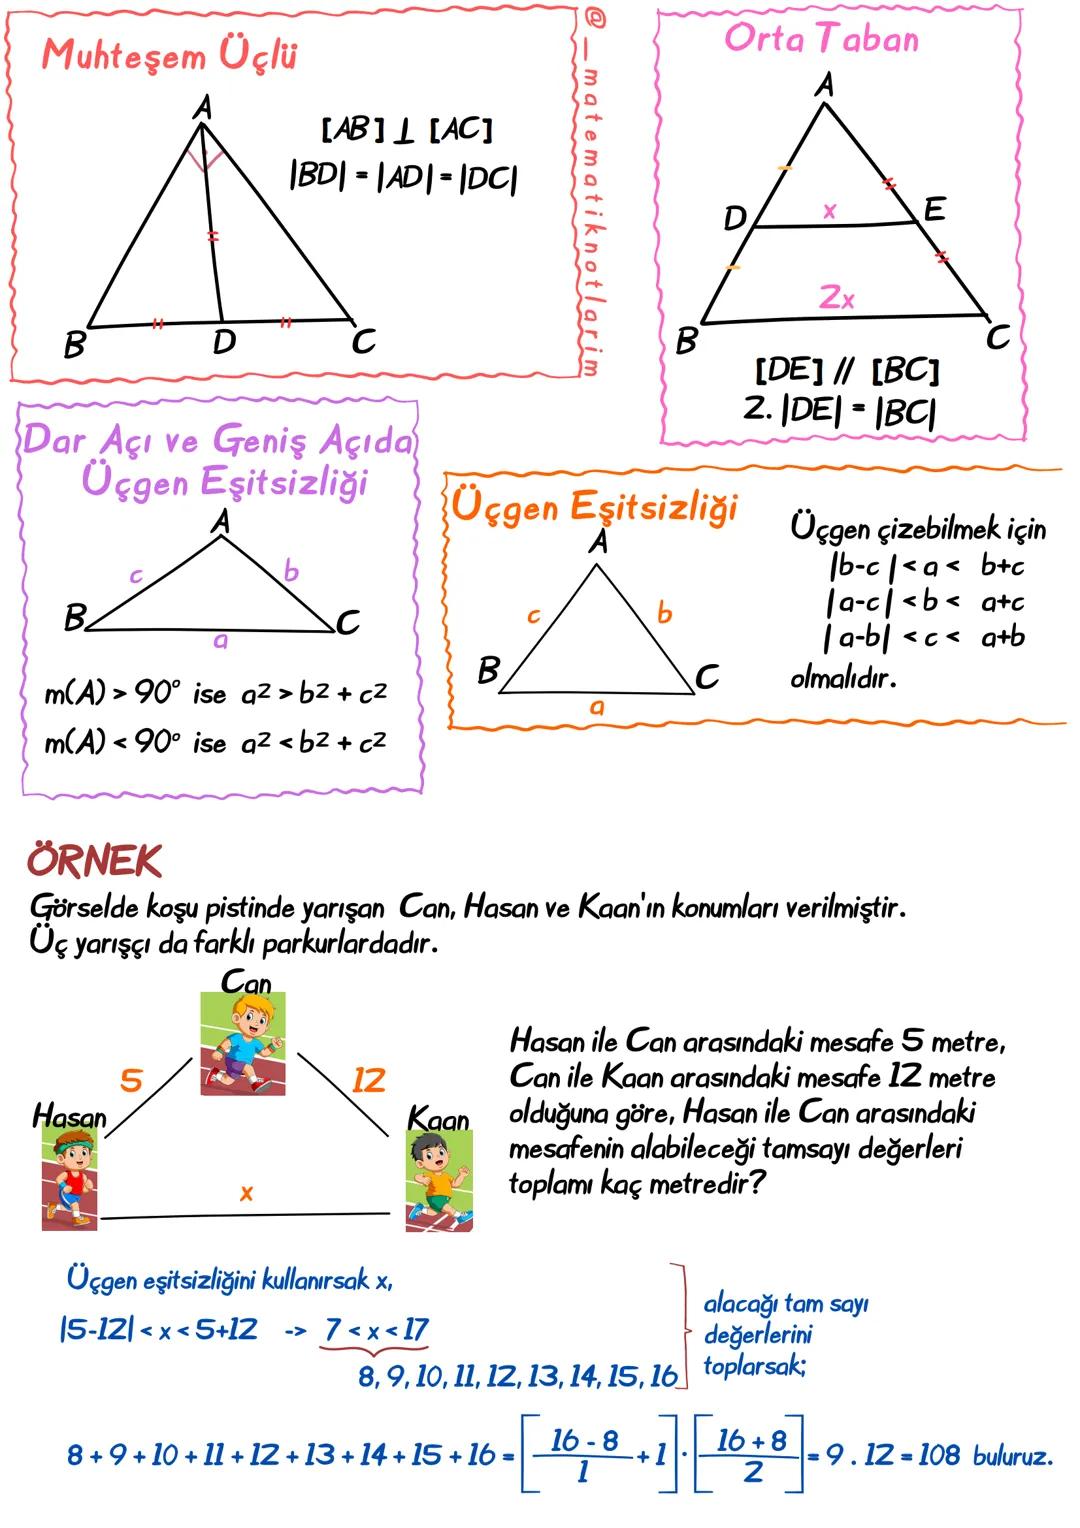 Muhteşem Üçlü
A
[AB] ⊥ [AC]
|BD| = |AD| = |DC|
B
D
C
@__matematiknotlarim
Orta Taban
A
D
x
E
2x
B
C
[DE] // [BC]
2. |DE| = |BC|
Dar Açı ve Geniş Açıda
Üçgen Eşitsizliği
A
c
b
B
C
a
m(A) > 90° ise a2 > b2 + c2
m(A) < 90° ise a2 < b2 + c2
Üçgen Eşitsizliği
A
c
b
B
C
a
Üçgen çizebilmek için
|b-c| < a < b+c
|a-c| < b < a+c
|a-b| < c < a+b
olmalıdır.
ÖRNEK
Görselde koşu pistinde yarışan Can, Hasan ve Kaan'ın konumları verilmiştir.
Üç yarışçı da farklı parkurlardadır.
Can
5
12
Hasan
Kaan
x
Hasan ile Can arasındaki mesafe 5 metre,
Can ile Kaan arasındaki mesafe 12 metre
olduğuna göre, Hasan ile Can arasındaki
mesafenin alabileceği tamsayı değerleri
toplamı kaç metredir?
Üçgen eşitsizliğini kullanırsak x,
|5-12| < x < 5+12 -> 7 < x < 17
8, 9, 10, 11, 12, 13, 14, 15, 16
alacağı tam sayı
değerlerini
toplarsak;
8 + 9 + 10 + 11 + 12 + 13 + 14 + 15 + 16 = [16 - 8 / 1 + 1] . [16 + 8 / 2] = 9 . 12 = 108 buluruz.